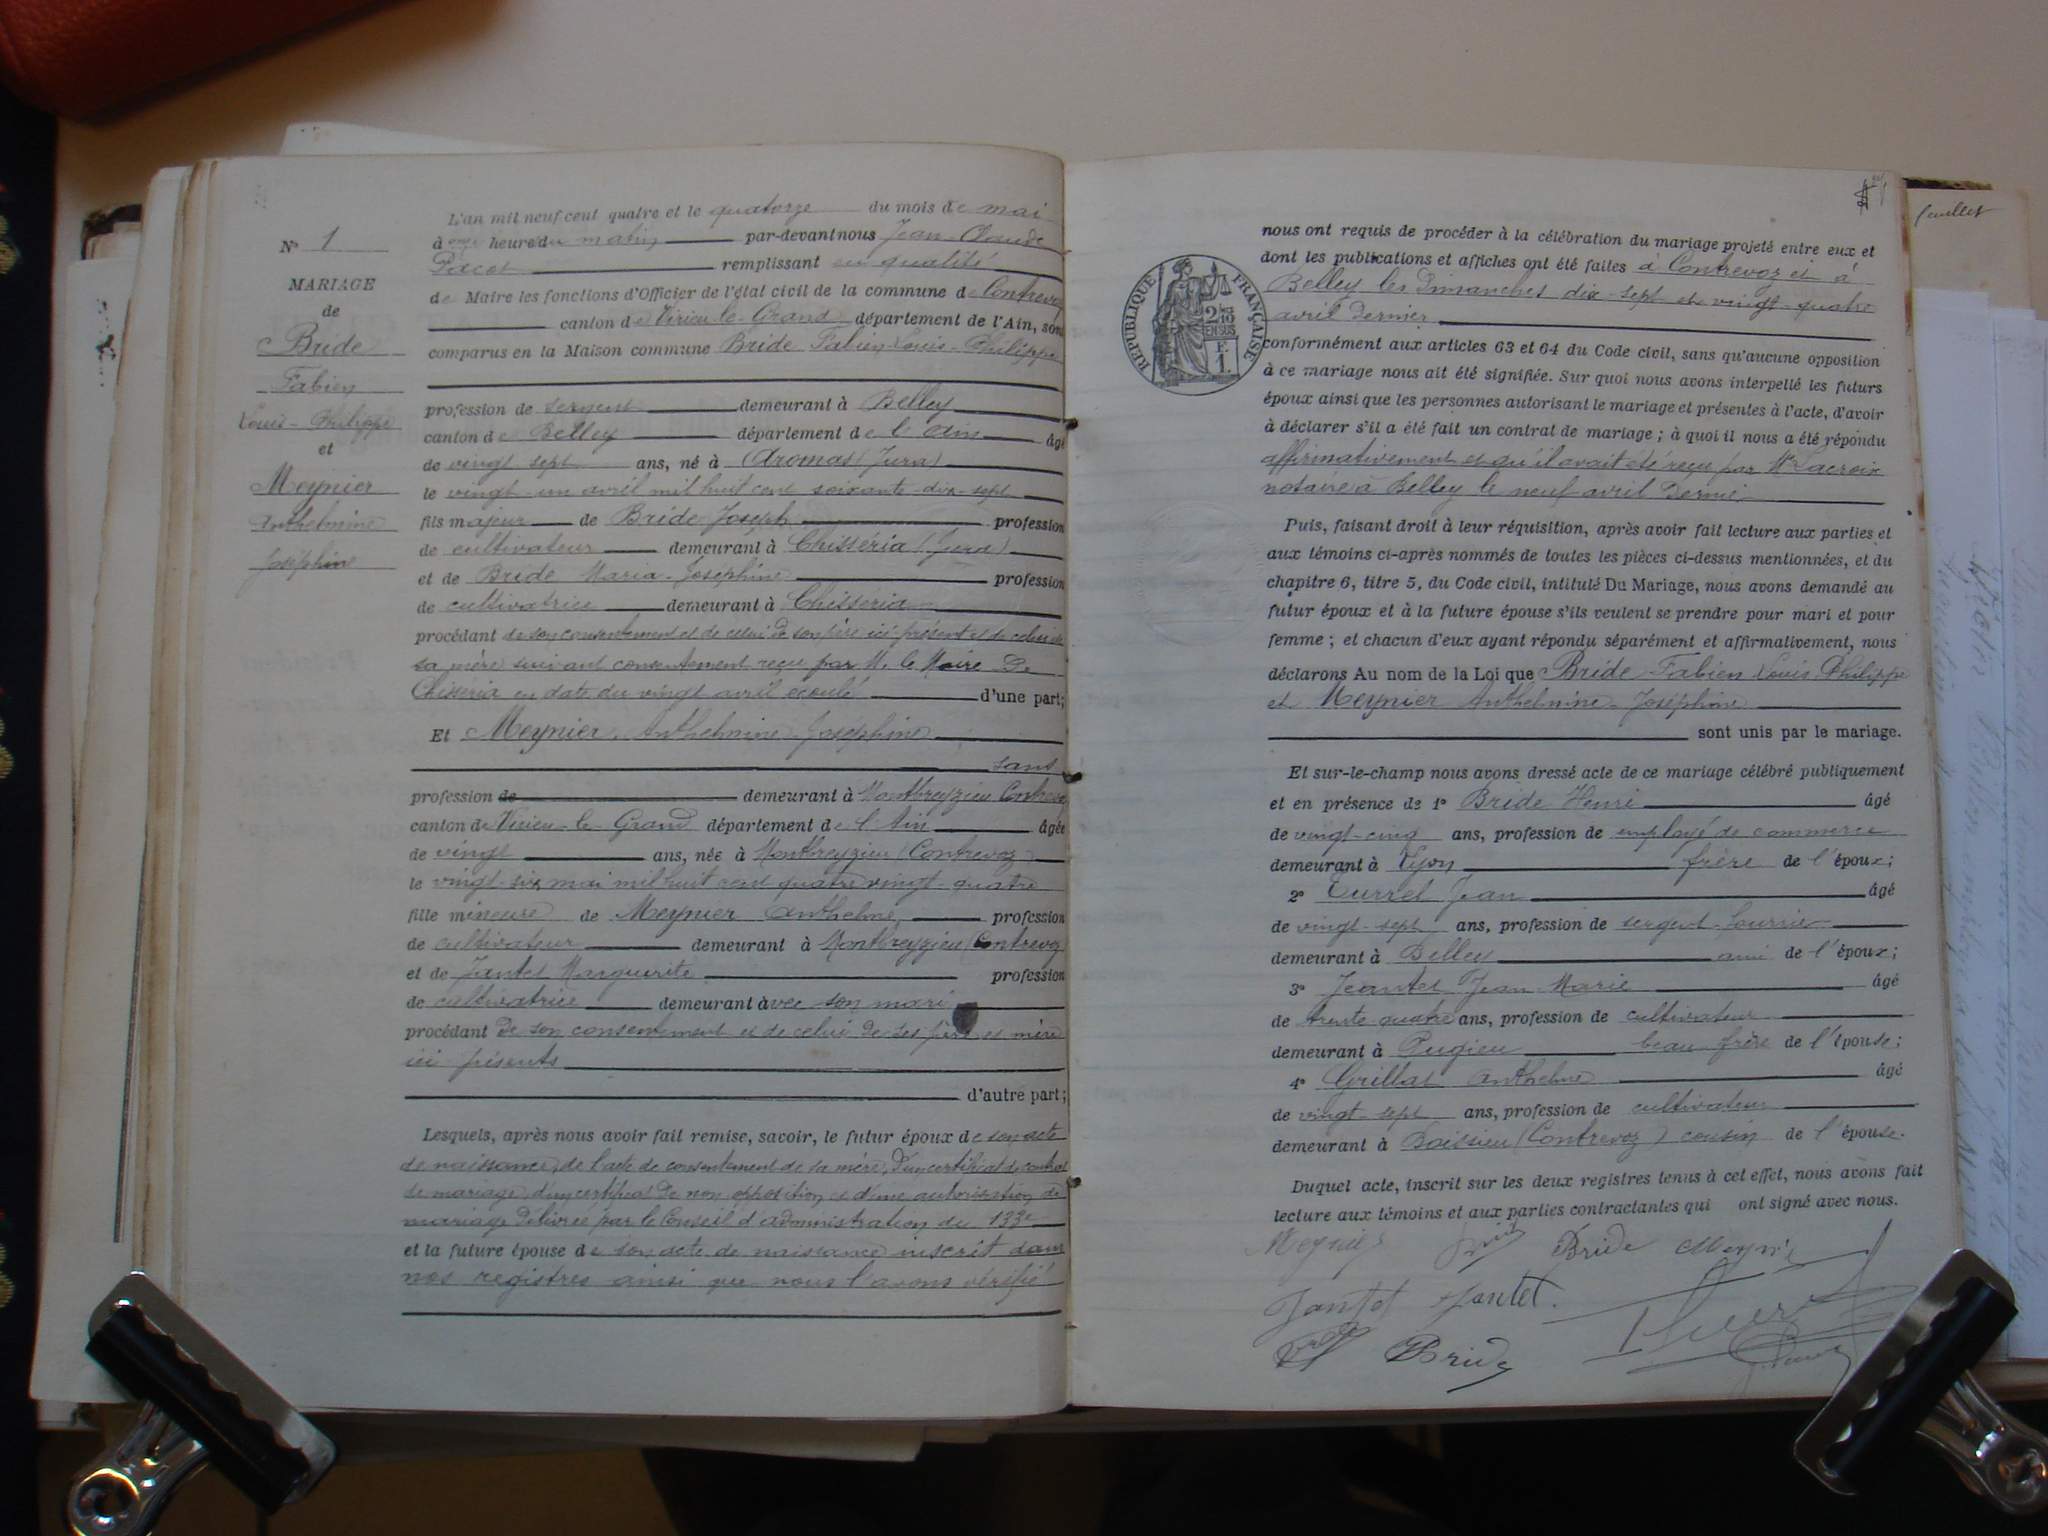 N° 1
MARIAGE
de
Bride
Fabien
Louis-Philippe
et
Meynier
Anthelmine
Joséphine
L'an mil neuf cent quatre et le quatorze du mois de mai
à onze heure du matin par-devant nous Jean-Claude
Pacot remplissant en qualité
de Maire les fonctions d'Officier de l'état civil de la commune de Contrevoz
canton de Virieu-le-Grand département de l'Ain, sont
comparus en la Maison commune Bride Fabien Louis-Philippe
profession de sergent demeurant à Belley
canton de Belley département de l'Ain âgé
de vingt sept ans, né à Aromas (Jura)
le vingt-un avril mil huit cent soixante-dix-sept
fils majeur de Bride Joseph profession
de cultivateur demeurant à Chisséria (Jura)
et de Bride Maria-Joséphine profession
de cultivatrice demeurant à Chisséria
procédant de son consentement et de celui de son père ici présent et de celui de
sa mère suivant consentement reçu par M. le Maire De
Chisseria en date du vingt avril écoulé d'une part;
Et Meynier Anthelmine Joséphine
sans
profession de demeurant à Montbreyzieu Contrevoz
canton de Virieu-le-Grand département de l'Ain âgée
de vingt ans, née à Montbreyzieu (Contrevoz)
le vingt-six mai mil huit cent quatre vingt-quatre
fille mineure de Meynier Anthelme profession
de cultivateur demeurant à Montbreyzieu (Contrevoz)
et de Jantet Marguerite profession
de cultivatrice demeurant avec son mari
procédant de son consentement et de celui de ses père et mère
ici présents
d'autre part;
Lesquels, après nous avoir fait remise, savoir, le futur époux de son acte
de naissance, de l'acte de consentement de sa mère, d'un certificat de contrat
de mariage, d'un certificat de non opposition et d'une autorisation de
mariage délivrée par le Conseil d'administration du 133e
et la future épouse de son acte de naissance inscrit dans
nos registres ainsi que nous l'avons vérifié
feuillet
RÉPUBLIQUE FRANÇAISE
2/10 EN SUS
F. 1.
nous ont requis de procéder à la célébration du mariage projeté entre eux et
dont les publications et affiches ont été faites à Contrevoz et à
Belley les Dimanches dix-sept et vingt-quatre
avril dernier
conformément aux articles 63 et 64 du Code civil, sans qu'aucune opposition
à ce mariage nous ait été signifiée. Sur quoi nous avons interpellé les futurs
époux ainsi que les personnes autorisant le mariage et présentes à l'acte, d'avoir
à déclarer s'il a été fait un contrat de mariage; à quoi il nous a été répondu
affirmativement et qu'il avait été reçu par Me Lacroix
notaire à Belley le neuf avril dernier
Puis, faisant droit à leur réquisition, après avoir fait lecture aux parties et
aux témoins ci-après nommés de toutes les pièces ci-dessus mentionnées, et du
chapitre 6, titre 5, du Code civil, intitulé Du Mariage, nous avons demandé au
futur époux et à la future épouse s'ils veulent se prendre pour mari et pour
femme; et chacun d'eux ayant répondu séparément et affirmativement, nous
déclarons Au nom de la Loi que Bride Fabien Louis Philippe
et Meynier Anthelmine-Joséphine
sont unis par le mariage.
Et sur-le-champ nous avons dressé acte de ce mariage célébré publiquement
et en présence de 1° Bride Henri âgé
de vingt-cinq ans, profession de employé de commerce
demeurant à Lyon frère de l'époux;
2° Turrel Jean âgé
de vingt-sept ans, profession de sergent-fourrier
demeurant à Belley ami de l'époux;
3° Jeantet Jean Marie âgé
de trente quatre ans, profession de cultivateur
demeurant à Pugieu beau frère de l'épouse;
4° Grillat Anthelme âgé
de vingt-sept ans, profession de cultivateur
demeurant à Boissieu (Contrevoz) cousin de l'épouse.
Duquel acte, inscrit sur les deux registres tenus à cet effet, nous avons fait
lecture aux témoins et aux parties contractantes qui ont signé avec nous.
Meynier Bride Meynier
Jantet Jantet
Bride